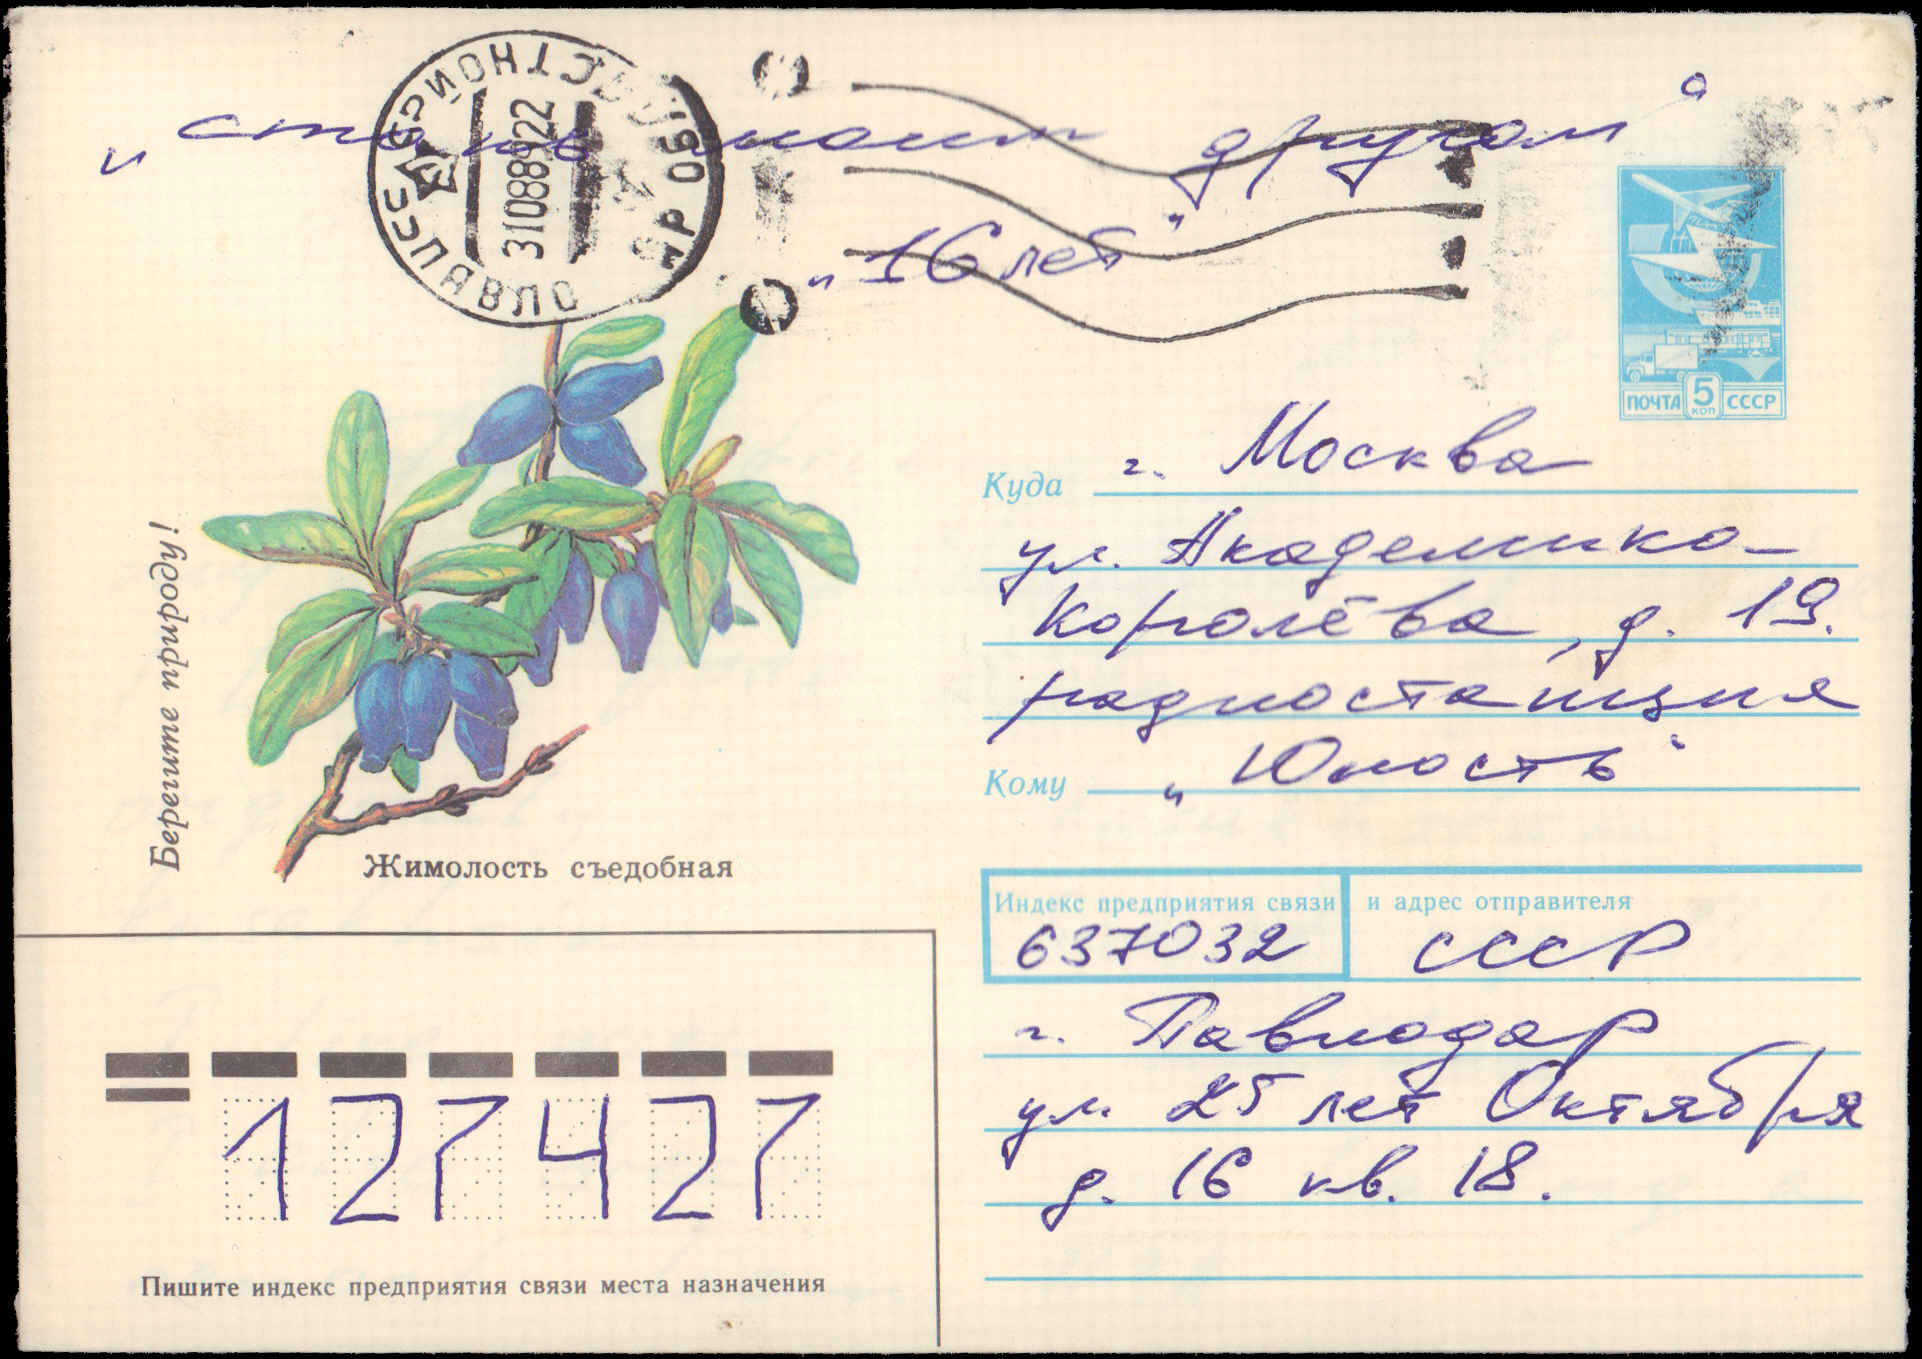 „стань моим другом“
„16 лет“
310889 22
ПОЧТА 5 КОП СССР
Берегите природу!
Жимолость съедобная
Куда г. Москва
ул. Академика-
Королёва, д. 19.
радиостанция
Кому „Юность“
Индекс предприятия связи и адрес отправителя
637032 СССР
г. Павлодар
ул. 25 лет Октября
д. 16 кв. 18.
127427
Пишите индекс предприятия связи места назначения